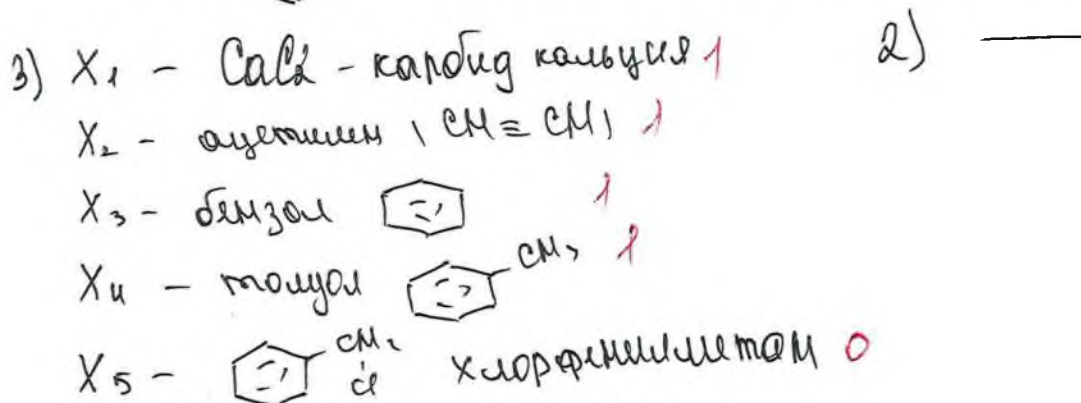 3) X₁ - CaC₂ - карбид кальция 1
2) —
X₂ - ацетилен ( CH ≡ CH ) 1
X₃ - бензол 1
X₄ - толуол CH₃ 1
X₅ - CH₂ Cl хлорфенилметан 0